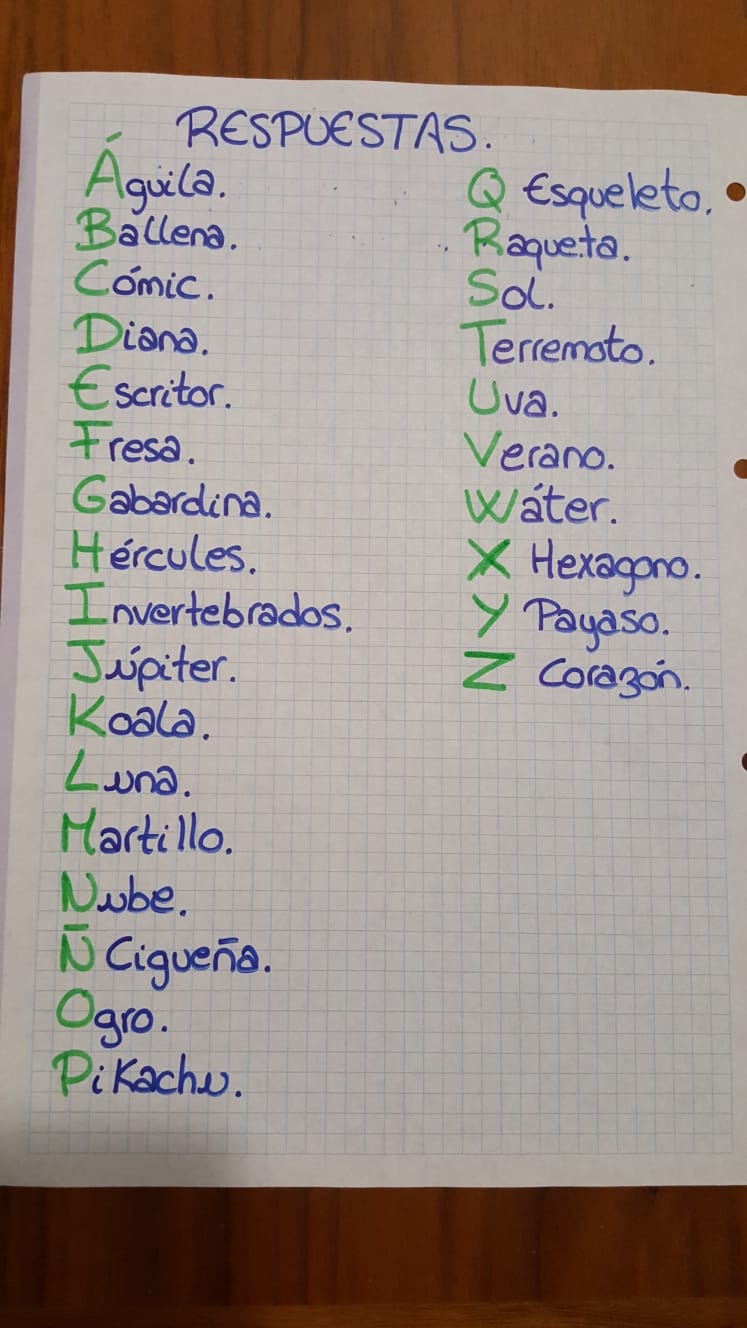 RESPUESTAS.
Águila.
Ballena.
Cómic.
Diana.
Escritor.
Fresa.
Gabardina.
Hércules.
Invertebrados.
Júpiter.
Koala.
Luna.
Martillo.
Nube.
Ñ Cigueña.
Ogro.
Pikachu.
Q Esqueleto.
Raqueta.
Sol.
Terremoto.
Uva.
Verano.
Wáter.
X Hexagono.
Y Payaso.
Z Corazón.